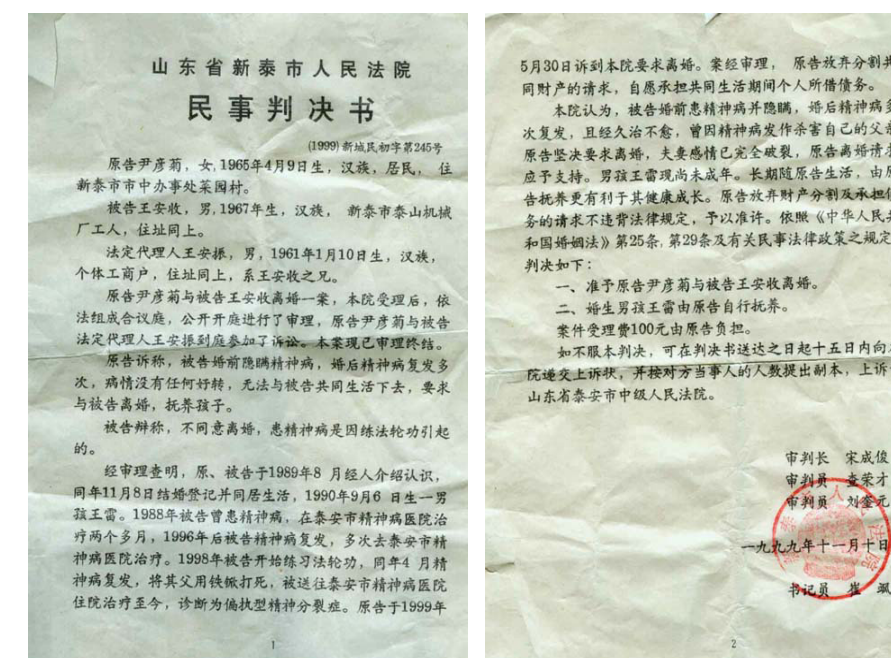 山东省新泰市人民法院
民事判决书
(1999)新城民初字第245号
原告尹彦菊，女，1965年4月9日生，汉族，居民，住
新泰市市中办事处菜园村。
被告王安收，男，1967年生，汉族，新泰市泰山机械
厂工人，住址同上。
法定代理人王安振，男，1961年1月10日生，汉族，
个体工商户，住址同上，系王安收之兄。
原告尹彦菊与被告王安收离婚一案，本院受理后，依
法组成合议庭，公开开庭进行了审理，原告尹彦菊与被告
法定代理人王安振到庭参加了诉讼。本案现已审理终结。
原告诉称，被告婚前隐瞒精神病，婚后精神病复发多
次，病情没有任何好转，无法与被告共同生活下去，要求
与被告离婚，抚养孩子。
被告辩称，不同意离婚，患精神病是因练法轮功引起
的。
经审理查明，原、被告于1989年8月经人介绍认识，
同年11月8日结婚登记并同居生活，1990年9月6日生一男
孩王雷。1988年被告曾患精神病，在泰安市精神病医院治
疗两个多月，1996年后被告精神病复发，多次去泰安市精
神病医院治疗。1998年被告开始练习法轮功，同年4月精
神病复发，将其父用铁锨打死，被送往泰安市精神病医院
住院治疗至今，诊断为偏执型精神分裂症。原告于1999年
1
5月30日诉到本院要求离婚。案经审理，原告放弃分割共
同财产的请求，自愿承担共同生活期间个人所借债务。
本院认为，被告婚前患精神病并隐瞒，婚后精神病多
次复发，且经久治不愈，曾因精神病发作杀害自己的父亲
原告坚决要求离婚，夫妻感情已完全破裂，原告离婚请求
应予支持。男孩王雷现尚未成年。长期随原告生活，由原
告抚养更有利于其健康成长。原告放弃财产分割及承担债
务的请求不违背法律规定，予以准许。依照《中华人民共
和国婚姻法》第25条，第29条及有关民事法律政策之规定
判决如下：
一、准予原告尹彦菊与被告王安收离婚。
二、婚生男孩王雷由原告自行抚养。
案件受理费100元由原告负担。
如不服本判决，可在判决书送达之日起十五日内向本
院递交上诉状，并按对方当事人的人数提出副本，上诉
山东省泰安市中级人民法院。
审判长 宋成俊
审判员 查荣才
审判员 刘奎元
一九九九年十一月十日
书记员 崔 飒
2